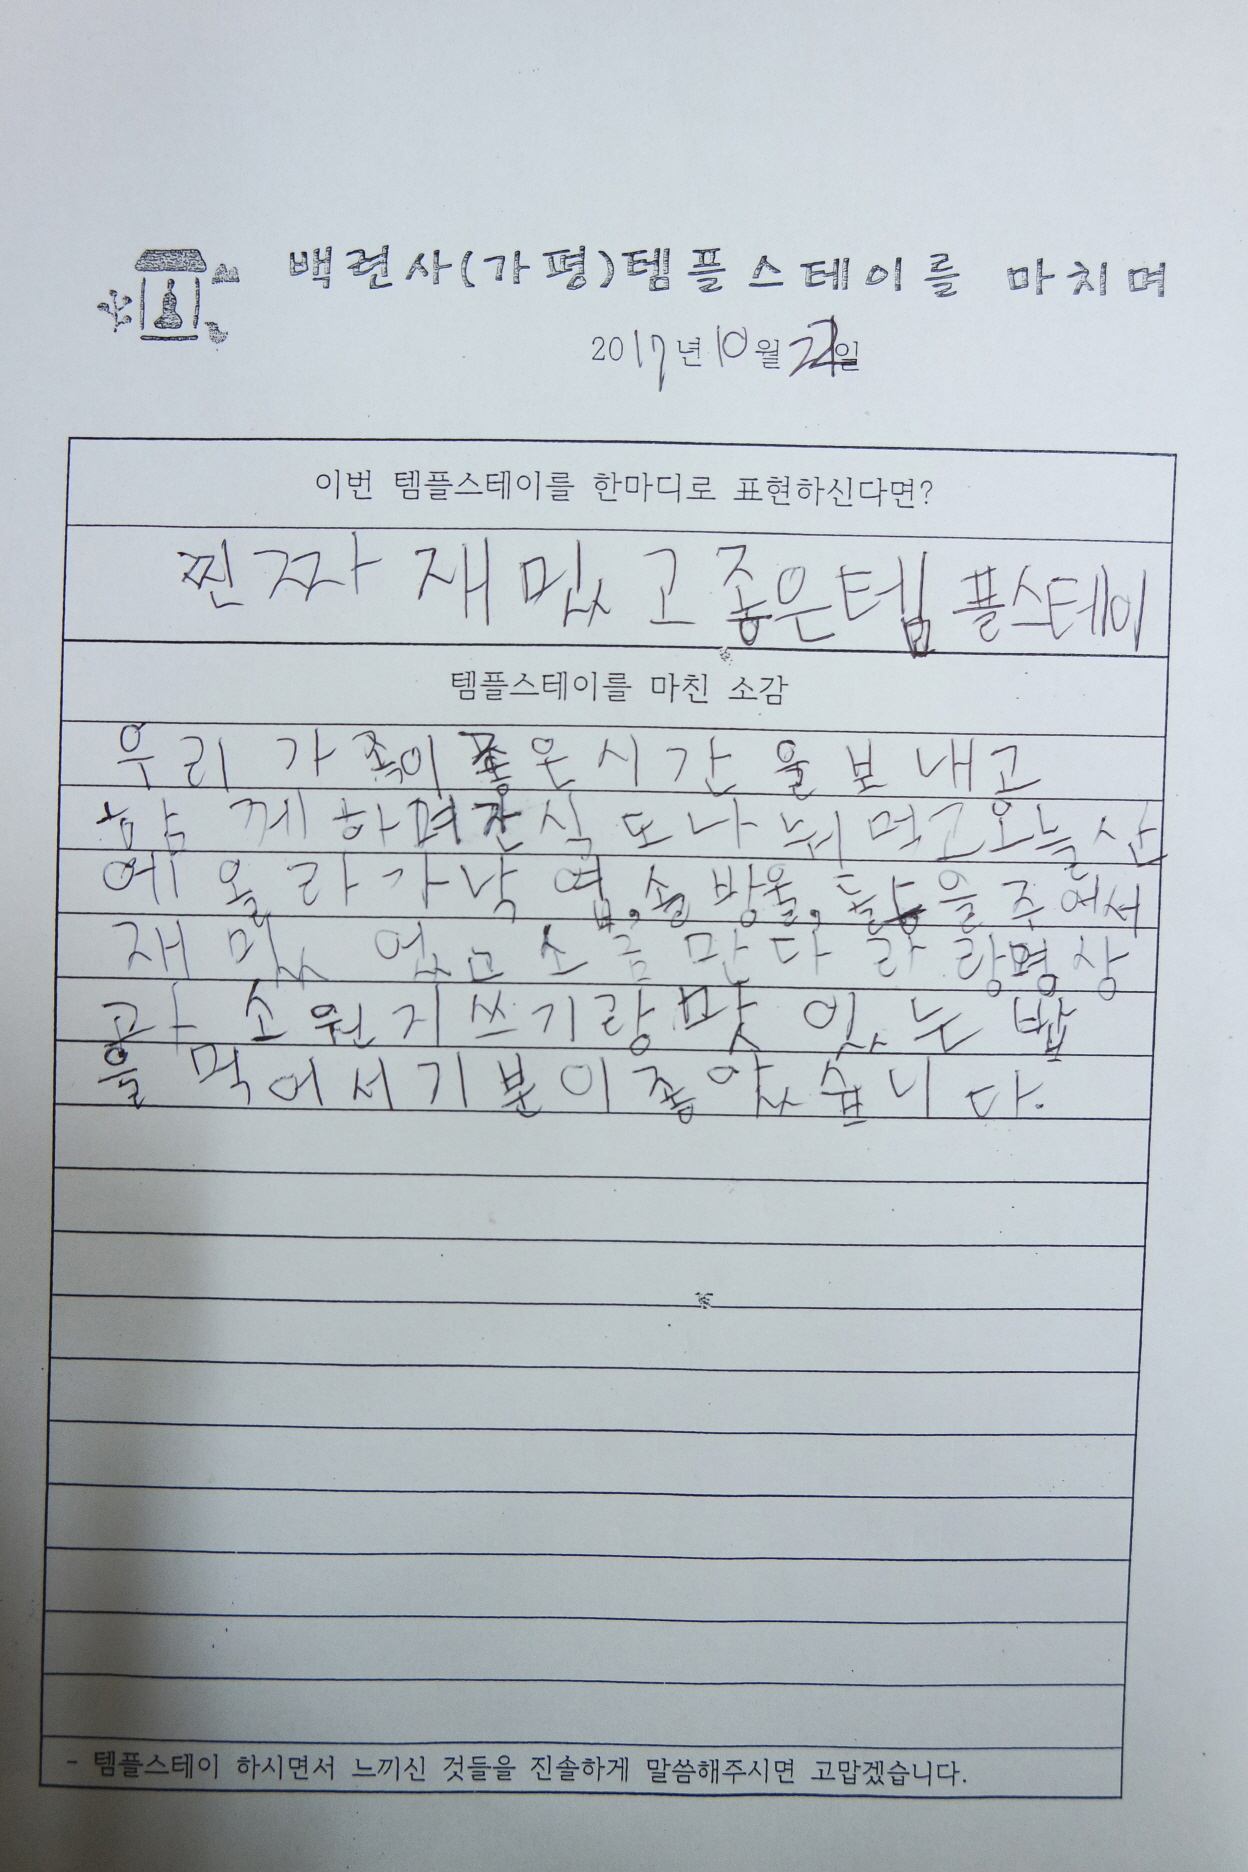 백련사(가평)템플스테이를 마치며
2017년 10월 22일
이번 템플스테이를 한마디로 표현하신다면?
찐짜 재밌고 좋은템플스테이
템플스테이를 마친 소감
우리 가족이 좋은 시간을 보내고
함께 하며 간식도 나눠 먹고 오늘 산
에 올라가 낙엽, 솔방울, 돌을 주어서
재밌었고 소금만다라랑 명상
과 소원지쓰기랑 맛있는 밥
을 먹어서 기분이 좋았습니다.
- 템플스테이 하시면서 느끼신 것들을 진솔하게 말씀해주시면 고맙겠습니다.